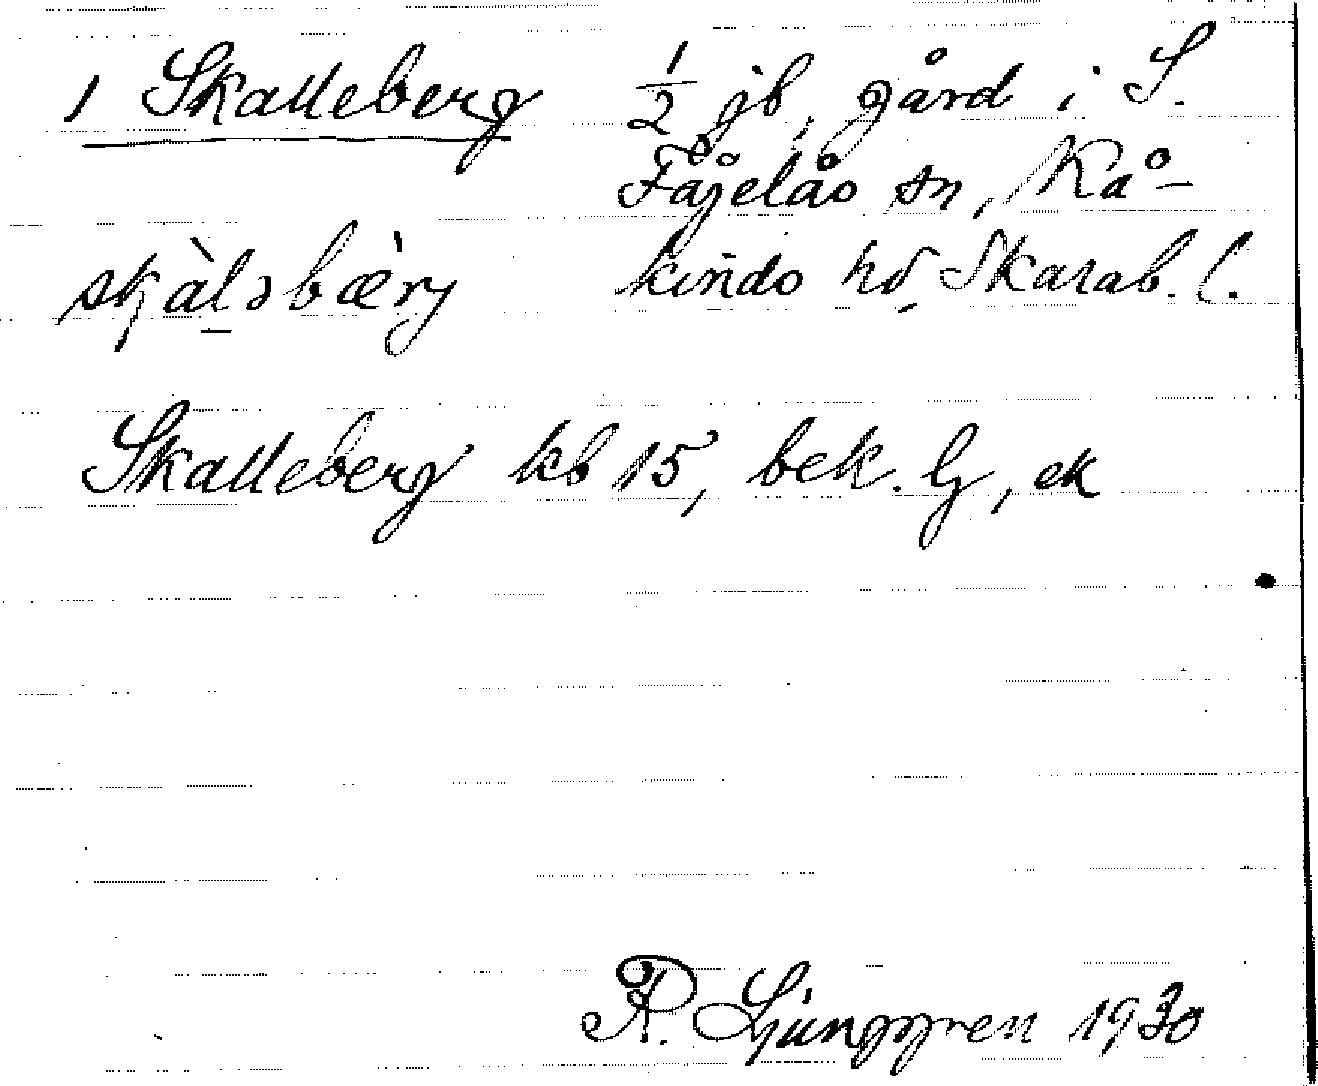 1 Skalleberg ½ jb, gård i S.
Fågelås sn, Kå-
skàlsbæ̀rj kindo hd Skarab. l.
Skalleberg kb 15, bek. lj, ek
R. Ljunggren 1930